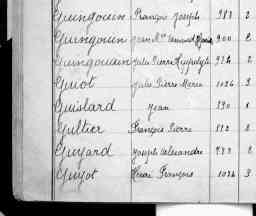 Guingouin François Joseph 983 2
Guingouin Jean Bte Armand Marie 900 2
Guingouain Jules Pierre Hippolyte 2
Guiot Jules Pierre Marie 1026 3
Guislard Jean 390
Gultier François Pierre
Guyard Joseph Alexandre 2
Guyot Henri François 1024 3